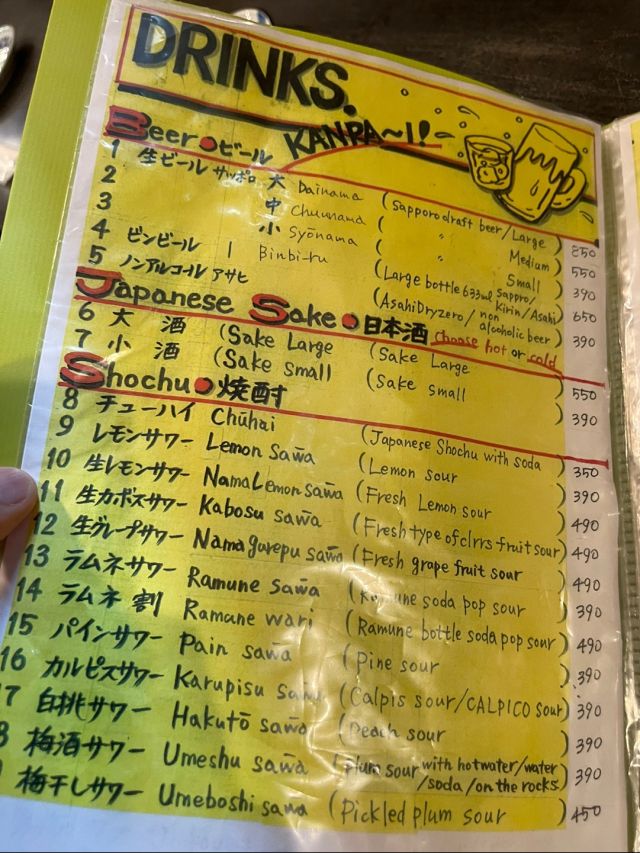 DRINKS.
KANPA~I!
Beer●ビール
1 生ビール サッポロ 大 Dainama (Sapporo draft beer/Large) 850
2 中 Chuunama ( 〃 Medium 550
3 小 Syōnama ( 〃 Small 390
4 ビンビール | Binbi-ru (Large bottle 633ml Sapporo/Kirin/Asahi) 650
5 ノンアルコール アサヒ (AsahiDryzero/non alcoholic beer) 390
Japanese Sake●日本酒 choose hot or cold
6 大 酒 (Sake Large (Sake Large ) 550
7 小 酒 (Sake small (Sake small ) 390
Shochu●焼酎
8 チューハイ Chūhai (Japanese Shochu with soda) 350
9 レモンサワー Lemon sawa (Lemon sour ) 390
10 生レモンサワー Nama Lemon sawa (Fresh Lemon sour ) 490
11 生カボスサワー Kabosu sawa (Fresh type of clrrs fruit sour) 490
12 生グレープサワー Nama gurepu sawa (Fresh grape fruit sour ) 490
13 ラムネサワー Ramune sawa (Ramune soda pop sour ) 390
14 ラムネ 割 Ramane wari (Ramune bottle soda pop sour) 490
15 パインサワー Pain sawa (Pine sour ) 390
16 カルピスサワー Karupisu sawa (Calpis sour/CALPICO sour) 390
7 白桃サワー Hakutō sawa (Peach sour ) 390
8 梅酒サワー Umeshu sawa (Plum sour with hotwater/water/soda/on the rocks) 390
梅干しサワー Umeboshi sawa (Pickled plum sour ) 450